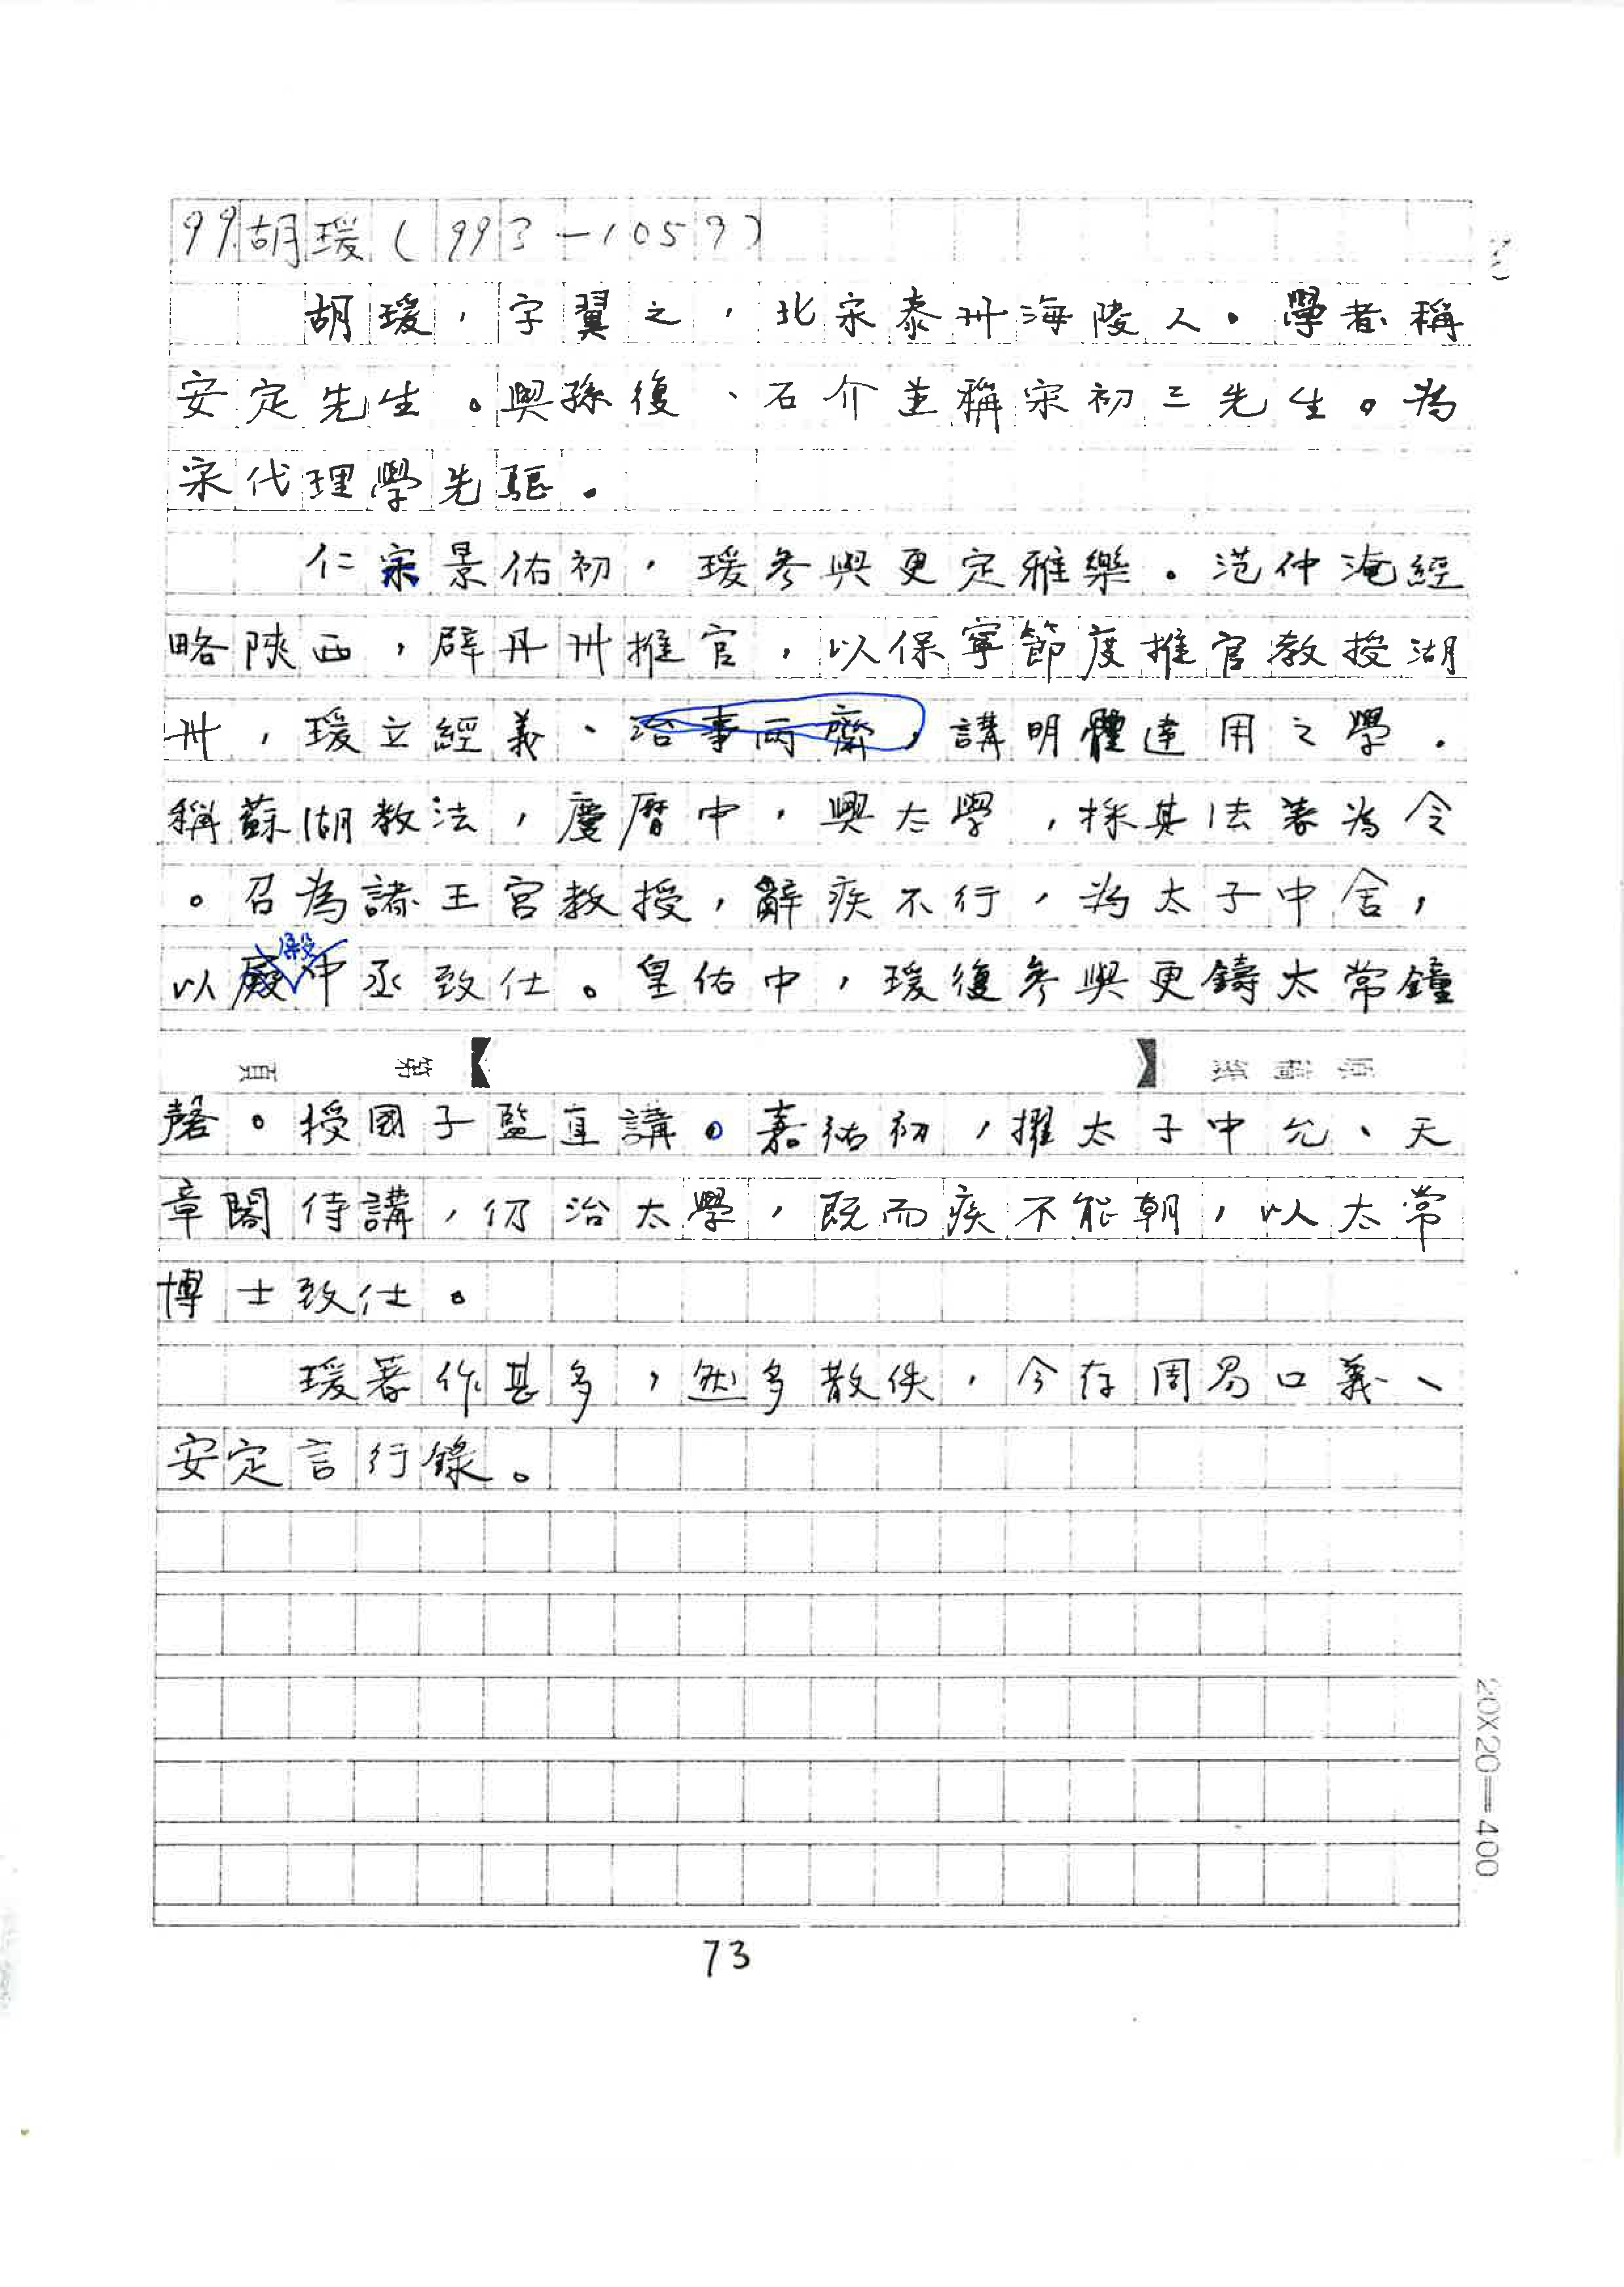 99胡瑗(993—1059)
胡瑗，字翼之，北宋泰州海陵人。學者稱
安定先生。與孫復、石介並稱宋初三先生。為
宋代理學先驅。
仁宗景佑初，瑗參與更定雅樂。范仲淹經
略陝西，辟丹州推官，以保寧節度推官教授湖
州，瑗立經義、治事兩齋，講明體達用之學。
稱蘇湖教法，慶曆中，興太學，採其法著為令
。召為諸王宮教授，辭疾不行，為太子中舍，
以殿中丞致仕。皇佑中，瑗復參與更鑄太常鐘
第 頁
原稿紙
磬。授國子監直講。嘉祐初，擢太子中允、天
章閣侍講，仍治太學，既而疾不能朝，以太常
博士致仕。
瑗著作甚多，然多散佚，今存周易口義、
安定言行錄。
20X20=400
73